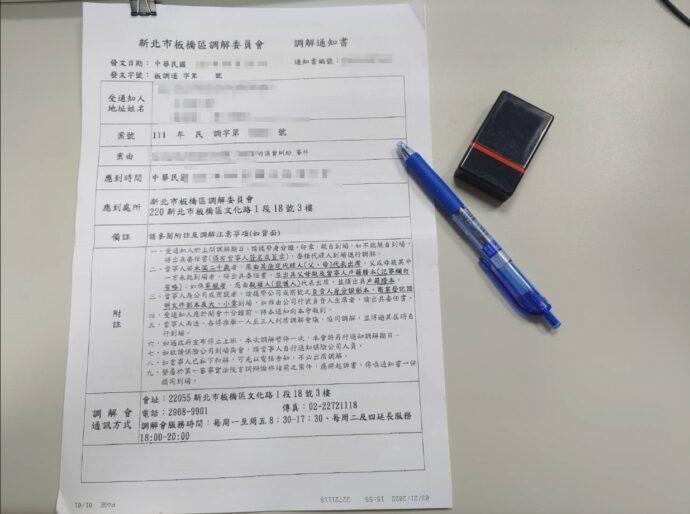 新北市板橋區調解委員會 調解通知書
發文日期：中華民國 通知書編號：
發文字號：板調通 字第 號
受通知人
地址姓名
案號 111 年 民 調字第 號
案由 糾紛 事件
應到時間 中華民國
應到處所 新北市板橋區調解委員會
220 新北市板橋區文化路 1 段 18 號 3 樓
備註 請參閱附及調解注意事項(如背面)
附註
一、受通知人於上開調解期日，請攜帶身分證、印章，親自到場，如不能親自到場，
得出具委任書(須有當事人簽名或蓋章)，委任代理人到場進行調解。
二、當事人若未滿二十歲者，應由其法定代理人(父、母)代表出席，父或母親其中
一方未能到場者，得出具委任書，並出具父母親及當事人戶籍謄本(記事欄勿
省略)；如係單親者，應由監護人代表出席，並須出具戶籍謄本。
三、當事人為公司或商號者，請攜帶公司或商號之負責人身分證影本、
證明文件影本及大、小章到場，如推由公司行號負責人出席者，請出具委任書。
四、受通知人應於開會十分鐘前，持本通知向本會報到。
五、當事人兩造，各得推舉一人至三人列席調解會議，協同調解，
行到場。
六、如遇政府宣布停止上班，本次調解暫停一次，本會將另行通知調解期日。
七、如欲請保險公司到場與會，請當事人自行通知保險公司人員。
八、如當事人已私下和解，可先以電話告知，不必出席調解。
九、繫屬於第一審事實法院言詞辯論終結前之案件，應將起訴書、傳喚通知書一併
攜同到場。
調解會
通訊方式
會址：22055 新北市板橋區文化路 1 段 18 號 3 樓
電話：2968-9901 傳真：02-22721118
調解會服務時間：每周一至周五 8：30-17：30、每周二及四延長服務
18:00-20:00
PAGE 01/01 22721118 03/21/2022 15:59